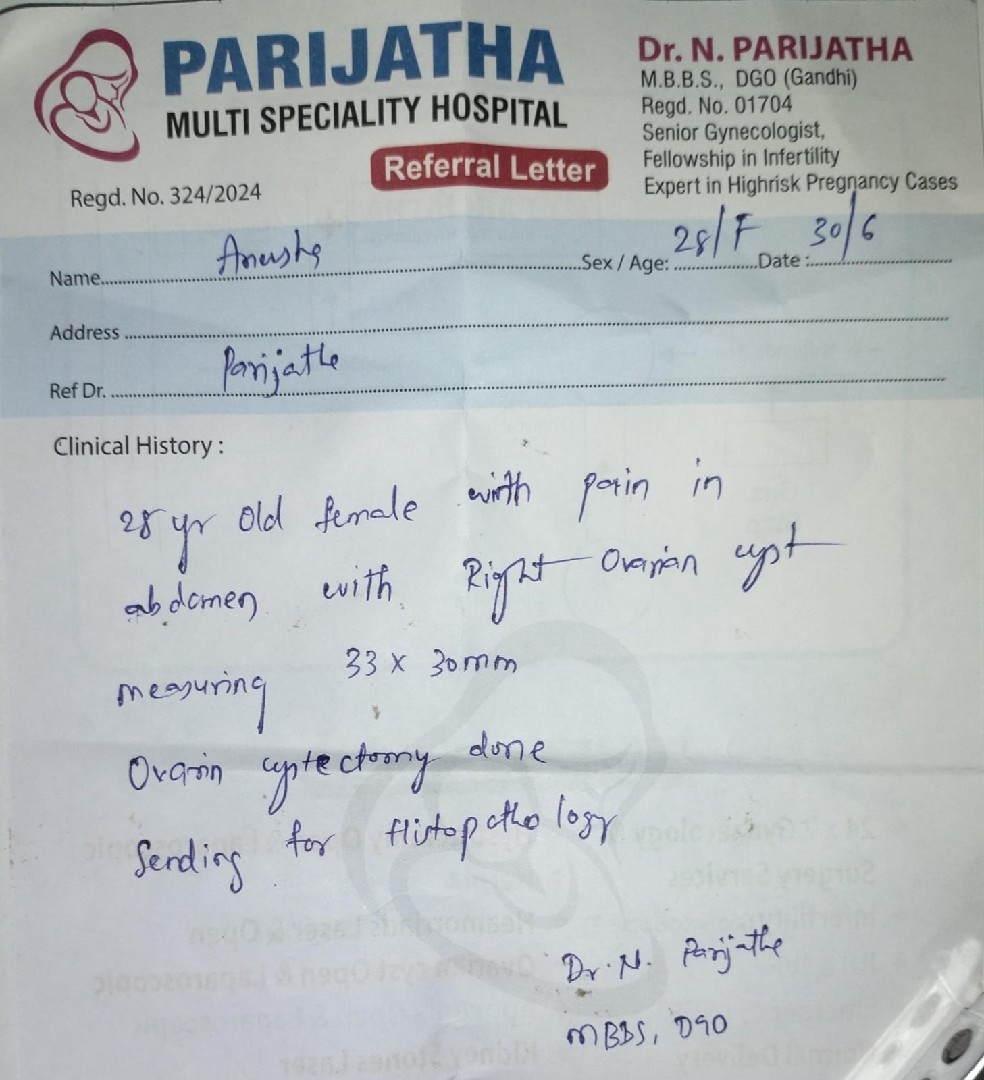 PARIJATHA
MULTI SPECIALITY HOSPITAL
Referral Letter
Regd. No. 324/2024
Dr. N. PARIJATHA
M.B.B.S., DGO (Gandhi)
Regd. No. 01704
Senior Gynecologist,
Fellowship in Infertility
Expert in Highrisk Pregnancy Cases
Name. Anusha Sex / Age: 28/F Date : 30/6
Address
Ref Dr. Parijatha
Clinical History :
28 yr old female with pain in
abdomen with Right Ovarian cyst
measuring 33 x 30mm
Ovarin cystectomy done
Sending for Histopathology
Dr. N. Parijatha
MBBS, DGO